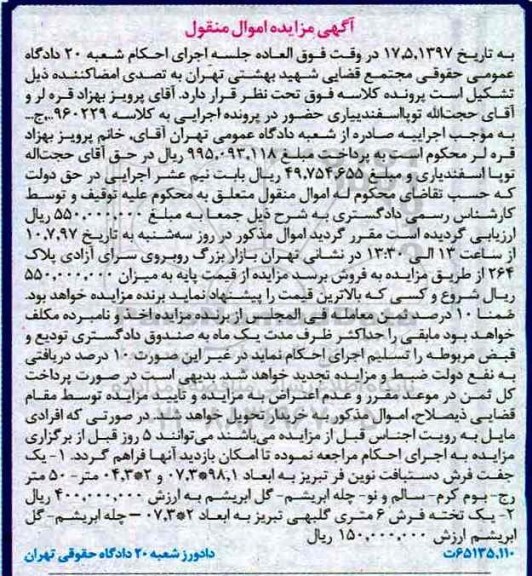 آگهی مزایده اموال منقول
به تاریخ ۱۷،۵،۱۳۹۷ در وقت فوق العاده جلسه اجرای احکام شعبه ۲۰ دادگاه
عمومی حقوقی مجتمع قضایی شهید بهشتی تهران به تصدی امضاکننده ذیل
تشکیل است پرونده کلاسه فوق تحت نظر قرار دارد. آقای پرویز بهزاد قره لر و
آقای حجت‌الله توپااسفندیاری حضور در پرونده اجرایی به کلاسه ۹۶۰۲۲۹...ج...
به موجب اجراییه صادره از شعبه دادگاه عمومی تهران آقای، خانم پرویز بهزاد
قره لر محکوم است به پرداخت مبلغ ۹۹۵،۰۹۳،۱۱۸ ریال در حق آقای حجت‌اله
توپا اسفندیاری و مبلغ ۴۹،۷۵۴،۶۵۵ ریال بابت نیم عشر اجرایی در حق دولت
که حسب تقاضای محکوم له اموال منقول متعلق به محکوم علیه توقیف و توسط
کارشناس رسمی دادگستری به شرح ذیل جمعا به مبلغ ۵۵۰،۰۰۰،۰۰۰ ریال
ارزیابی گردیده است مقرر گردید اموال مذکور در روز سه‌شنبه به تاریخ ۱۰،۷،۹۷
از ساعت ۱۳ الی ۱۳:۳۰ در نشانی تهران بازار بزرگ روبروی سرای آزادی پلاک
۲۶۴ از طریق مزایده به فروش برسد مزایده از قیمت پایه به میزان ۵۵۰،۰۰۰،۰۰۰
ریال شروع و کسی که بالاترین قیمت را پیشنهاد نماید برنده مزایده خواهد بود.
ضمنا ۱۰ درصد ثمن معامله فی المجلس از برنده مزایده اخذ و نامبرده مکلف
خواهد بود مابقی را حداکثر ظرف مدت یک ماه به صندوق دادگستری تودیع و
قبض مربوطه را تسلیم اجرای احکام نماید در غیر این صورت ۱۰ درصد دریافتی
به نفع دولت ضبط و مزایده تجدید خواهد شد. بدیهی است در صورت پرداخت
کل ثمن در موعد مقرر و عدم اعتراض به مزایده و تایید مزایده توسط مقام
قضایی ذیصلاح، اموال مذکور به خریدار تحویل خواهد شد. در صورتی که افرادی
مایل به رویت اجناس قبل از مزایده می‌باشند می‌توانند ۵ روز قبل از برگزاری
مزایده به اجرای احکام مراجعه نموده تا امکان بازدید آنها فراهم گردد. ۱- یک
جفت فرش دستبافت نوین فر تبریز به ابعاد ۹۸،۱*۰۷،۳ و ۲*۰۴،۳ متر- ۵۰ متر
رج- بوم کرم- سالم و نو- چله ابریشم- گل ابریشم به ارزش ۴۰۰،۰۰۰،۰۰۰ ریال
۲- یک تخته فرش ۶ متری گلبهی تبریز به ابعاد ۲*۰۷،۳ – چله ابریشم- گل
ابریشم ارزش ۱۵۰،۰۰۰،۰۰۰ ریال
۶۵۱۳۵،۱۱۰ت دادورز شعبه ۲۰ دادگاه حقوقی تهران